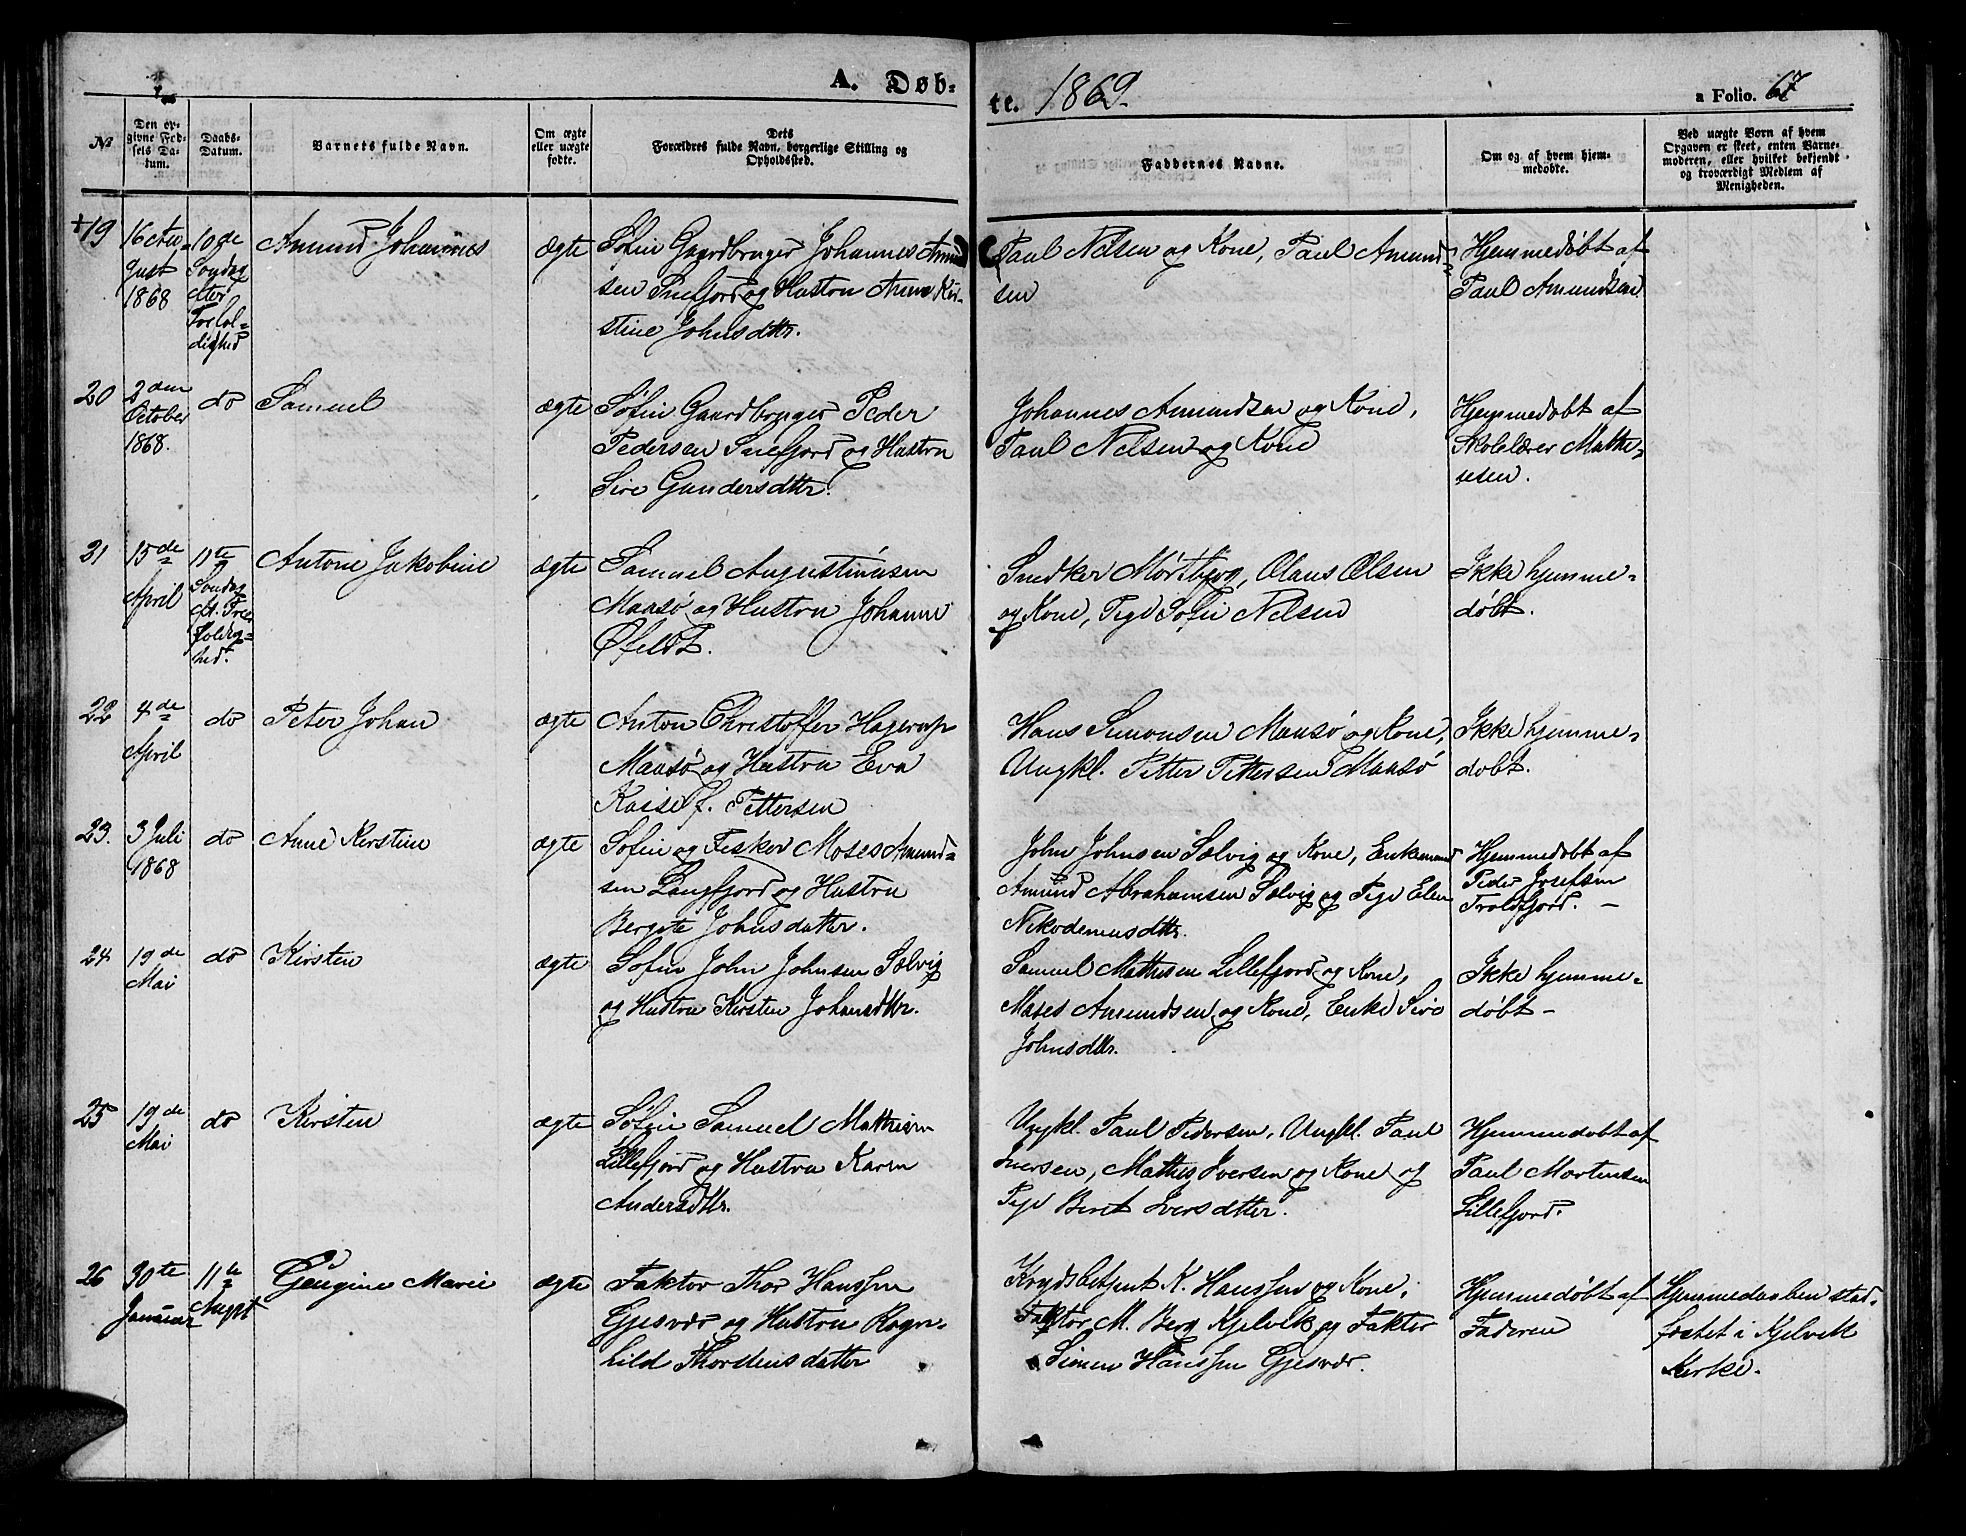 A. Døb-
te. 1869.
a Folio. 67
№
Den op-
givne Fød-
sels Da-
tum.
Daabs-
Datum.
Barnets fulde Navn.
Om ægte
eller uægte
fødte.
Dets
Forældres fulde Navn, borgerlige Stilling og
Opholdssted.
Faddernes Navne.
Om og af hvem hjem-
medøbte.
Ved uægte Børn af hvem
Opgaven er skeet, enten Barne-
moderen, eller hvilket bekjendt
og troværdigt Medlem af
Menigheden.
+19
16 Au-
gust
1868
10de
Søndag
efter
Trefol-
dighed
Amund Johannes
ægte
Søfin Gaardbruger Johannes Amund
sen Snefjord og Hustru Anne Kir-
stine Johnsdttr.
Paul Nelsen og Kone, Paul Amund-
sen
Hjemmedøbt af
Paul Amundsen
20
2den
October
1868.
do
Samuel
ægte
Søfin Gaardbruger Peder
Pedersen Snefjord og Hustru
Sire Gundersdttr.
Johannes Amundsen og Kone,
Paul Nelsen og Kone
Hjemmedøbt af
Skolelærer Mathi-
sesen.
21
15de
April
11te
Søndag
ef. Tre
foldig-
hed.
Antone Jakobine
ægte
Samuel Augustinusen
Maasø og Hustru Johanne
Øfeldt.
Snedker Mørtbjerg, Olaus Olsen
og Kone, Pige Sofie Nelsen
Ikke hjemme-
døbt.
22
4de
April
do
Peter Johan
ægte
Anton Christoffer Hagerup
Maasø og Hustru Eva
Kaise f. Pettersen
Hans Simonsen Maasø og Kone,
Ungkl. Petter Pettersen Maasø
Ikke hjemme-
døbt.
23.
3 Juli
1868
do
Anne Kirstine
ægte
Søfin og Fisker Moses Amund-
sen Langfjord og Hustru
Bergite Johnsdatter.
John Johnsen Selvig og Kone, Enkemand
Amund Abrahamsen Selvig og Pige Elen
Nikodemusdttr.
Hjemmedøbt af
Peder Josefsen
Troldfjord. -
24
19de
Mai
do
Kirsten
ægte
Søfin John Johnsen Selvig
og Hustru Kirsten Johansdttr.
Samuel Mathisen Lillefjord og Kone,
Moses Amundsen og Kone, Enke Sire
Johnsdttr.
Ikke hjemme-
døbt -
25
19de
Mai
do
Kirsten
ægte
Søfin Samuel Mathisen
Lillefjord og Hustru Karen
Andersdttr.
Ungkl. Paul Pedersen, Ungkl. Paul
Iversen, Mathis Iversen og Kone og
Pige Beret Iversdatter.
Hjemmedøbt af
Paul Mortensen
Lillefjord.
26
30te
Januar
11te
August
Georgine Marie
ægte
Faktor Thor Hanssen
Gjesvær og Hustru Ragn-
hild Thorstensdatter
Krydsbetjent K. Hanssen og Kone,
Faktor M. Berg Kjelvik og Faktor
Simen Hanssen Gjesvær.
Hjemmedøbt af
Faderen
Hjemmedaaben stad-
fæstet i Kjelvik
Kirke.